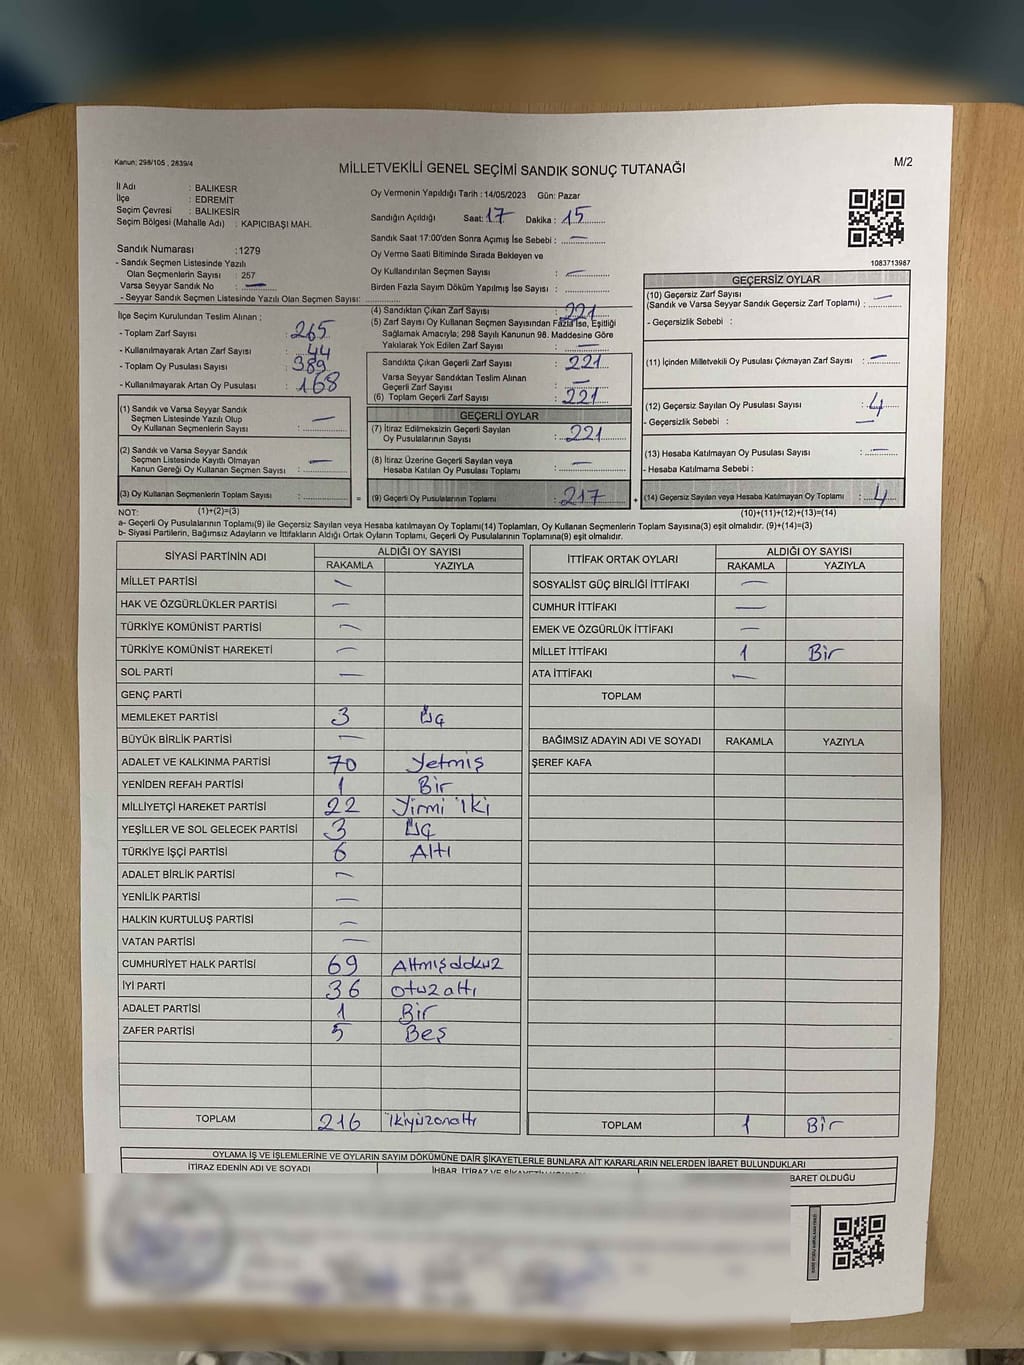 Kanun: 298/105 , 2839/4
MİLLETVEKİLİ GENEL SEÇİMİ SANDIK SONUÇ TUTANAĞI
M/2
İl Adı : BALIKESR
İlçe : EDREMİT
Seçim Çevresi : BALIKESİR
Seçim Bölgesi (Mahalle Adı) : KAPICIBAŞI MAH.
Sandık Numarası :1279
- Sandık Seçmen Listesinde Yazılı
Olan Seçmenlerin Sayısı : 257
Varsa Seyyar Sandık No : —
- Seyyar Sandık Seçmen Listesinde Yazılı Olan Seçmen Sayısı:
İlçe Seçim Kurulundan Teslim Alınan ;
- Toplam Zarf Sayısı : 265
- Kullanılmayarak Artan Zarf Sayısı : 44
- Toplam Oy Pusulası Sayısı : 389
- Kullanılmayarak Artan Oy Pusulası : 168
(1) Sandık ve Varsa Seyyar Sandık
Seçmen Listesinde Yazılı Olup
Oy Kullanan Seçmenlerin Sayısı : —
(2) Sandık ve Varsa Seyyar Sandık
Seçmen Listesinde Kayıtlı Olmayan
Kanun Gereği Oy Kullanan Seçmen Sayısı : —
(3) Oy Kullanan Seçmenlerin Toplam Sayısı :
Oy Vermenin Yapıldığı Tarih : 14/05/2023 Gün: Pazar
Sandığın Açıldığı Saat: 17 Dakika : 15
Sandık Saat 17:00'den Sonra Açımış İse Sebebi : —
Oy Verme Saati Bitiminde Sırada Bekleyen ve
Oy Kullandırılan Seçmen Sayısı : —
Birden Fazla Sayım Döküm Yapılmış İse Sayısı :
(4) Sandıktan Çıkan Zarf Sayısı : 221
(5) Zarf Sayısı Oy Kullanan Seçmen Sayısından Fazla İse, Eşitliği
Sağlamak Amacıyla; 298 Sayılı Kanunun 98. Maddesine Göre
Yakılarak Yok Edilen Zarf Sayısı : —
Sandıkta Çıkan Geçerli Zarf Sayısı : 221
Varsa Seyyar Sandıktan Teslim Alınan
Geçerli Zarf Sayısı : —
(6) Toplam Geçerli Zarf Sayısı : 221
GEÇERLİ OYLAR
(7) İtiraz Edilmeksizin Geçerli Sayılan
Oy Pusulalarının Sayısı : 221
(8) İtiraz Üzerine Geçerli Sayılan veya
Hesaba Katılan Oy Pusulası Toplamı : —
= (9) Geçerli Oy Pusulalarının Toplamı : 217 +
1083713987
GEÇERSİZ OYLAR
(10) Geçersiz Zarf Sayısı
(Sandık ve Varsa Seyyar Sandık Geçersiz Zarf Toplamı) : —
- Geçersizlik Sebebi :
(11) İçinden Milletvekili Oy Pusulası Çıkmayan Zarf Sayısı : —
(12) Geçersiz Sayılan Oy Pusulası Sayısı : 4
- Geçersizlik Sebebi : —
(13) Hesaba Katılmayan Oy Pusulası Sayısı : —
- Hesaba Katılmama Sebebi :
(14) Geçersiz Sayılan veya Hesaba Katılmayan Oy Toplamı : 4
NOT: (1)+(2)=(3) (10)+(11)+(12)+(13)=(14)
a- Geçerli Oy Pusulalarının Toplamı(9) ile Geçersiz Sayılan veya Hesaba katılmayan Oy Toplamı(14) Toplamları, Oy Kullanan Seçmenlerin Toplam Sayısına(3) eşit olmalıdır. (9)+(14)=(3)
b- Siyasi Partilerin, Bağımsız Adayların ve İttifakların Aldığı Ortak Oyların Toplamı, Geçerli Oy Pusulalarının Toplamına(9) eşit olmalıdır.
SİYASİ PARTİNİN ADI ALDIĞI OY SAYISI
RAKAMLA YAZIYLA
MİLLET PARTİSİ —
HAK VE ÖZGÜRLÜKLER PARTİSİ —
TÜRKİYE KOMÜNİST PARTİSİ —
TÜRKİYE KOMÜNİST HAREKETİ —
SOL PARTİ —
GENÇ PARTİ
MEMLEKET PARTİSİ 3 Üç
BÜYÜK BİRLİK PARTİSİ —
ADALET VE KALKINMA PARTİSİ 70 Yetmiş
YENİDEN REFAH PARTİSİ 1 Bir
MİLLİYETÇİ HAREKET PARTİSİ 22 Yirmi iki
YEŞİLLER VE SOL GELECEK PARTİSİ 3 Üç
TÜRKİYE İŞÇİ PARTİSİ 6 Altı
ADALET BİRLİK PARTİSİ —
YENİLİK PARTİSİ —
HALKIN KURTULUŞ PARTİSİ —
VATAN PARTİSİ —
CUMHURİYET HALK PARTİSİ 69 Altmışdokuz
İYİ PARTİ 36 otuzaltı
ADALET PARTİSİ 1 Bir
ZAFER PARTİSİ 5 Beş
TOPLAM 216 ikiyüzonaltı
İTTİFAK ORTAK OYLARI ALDIĞI OY SAYISI
RAKAMLA YAZIYLA
SOSYALİST GÜÇ BİRLİĞİ İTTİFAKI —
CUMHUR İTTİFAKI —
EMEK VE ÖZGÜRLÜK İTTİFAKI —
MİLLET İTTİFAKI 1 Bir
ATA İTTİFAKI —
TOPLAM
BAĞIMSIZ ADAYIN ADI VE SOYADI RAKAMLA YAZIYLA
ŞEREF KAFA
TOPLAM 1 Bir
OYLAMA İŞ VE İŞLEMLERİNE VE OYLARIN SAYIM DÖKÜMÜNE DAİR ŞİKAYETLERLE BUNLARA AİT KARARLARIN NELERDEN İBARET BULUNDUKLARI
İTİRAZ EDENİN ADI VE SOYADI
İHBAR, İTİRAZ VE
BARET OLDUĞU